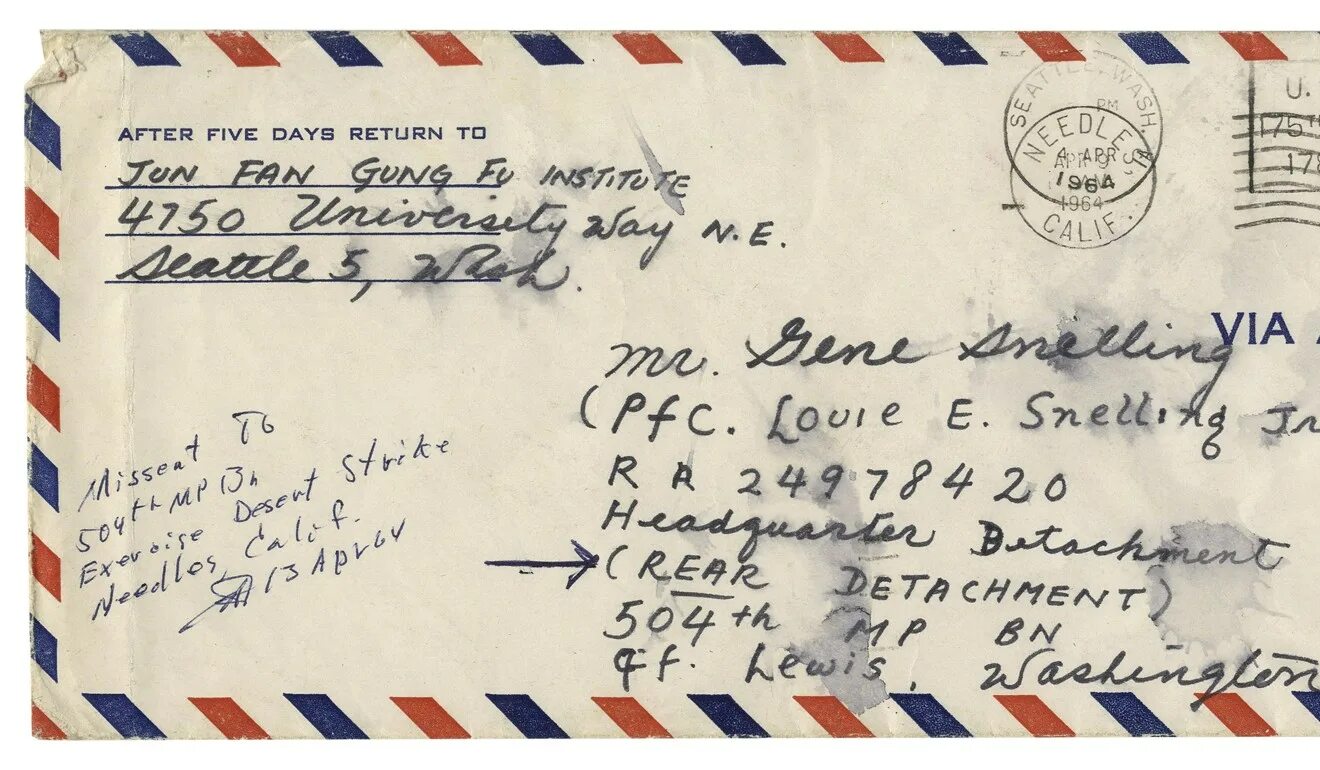 AFTER FIVE DAYS RETURN TO
JUN FAN GUNG FU INSTITUTE
4750 University Way N.E.
Seattle 5, Wash.
SEATTLE, WASH.
PM
NEEDLES,
4 APR
1964
1964
CALIF.
U.
175TH
178
VIA
Mr. Gene Snelling
(Pfc. Louie E. Snelling Jr
R A 24978420
Headquarter Detachment
(REAR DETACHMENT)
504th MP BN
Ft. Lewis, Washington
Missent To
504th MP Bn
Exercise Desert Strike
Needles, Calif.
13 Apr 64